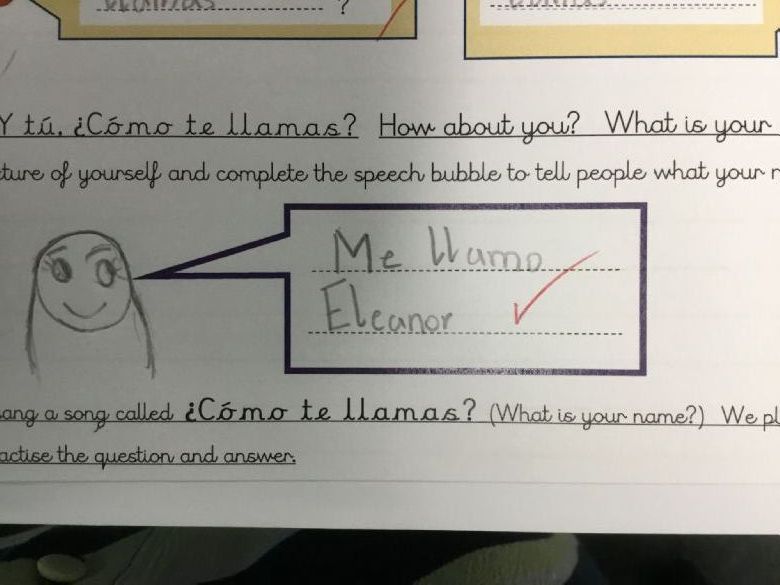 ?
Y tú. ¿Cómo te llamas? How about you? What is your
ture of yourself and complete the speech bubble to tell people what your
Me llamo
Eleanor
ang a song called ¿Cómo te llamas? (What is your name?) We pl
actise the question and answer.